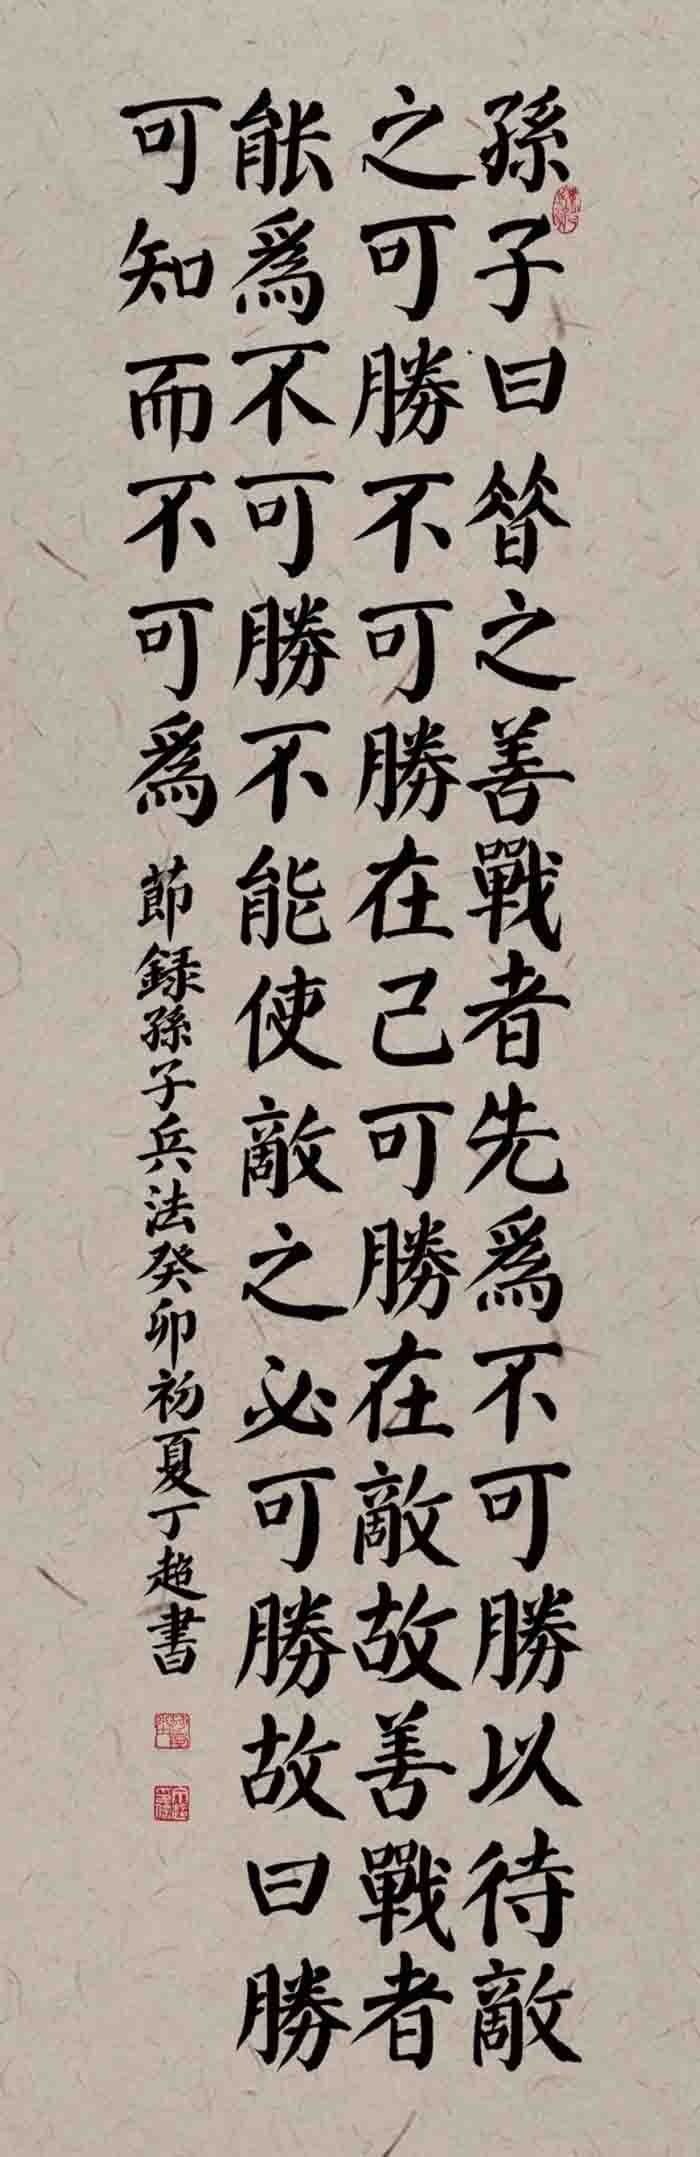 孫子曰昝之善戰者先為不可勝以待敵
之可勝不可勝在己可勝在敵故善戰者
能為不可勝不能使敵之必可勝故曰勝
可知而不可為
節録孫子兵法癸卯初夏丁超書